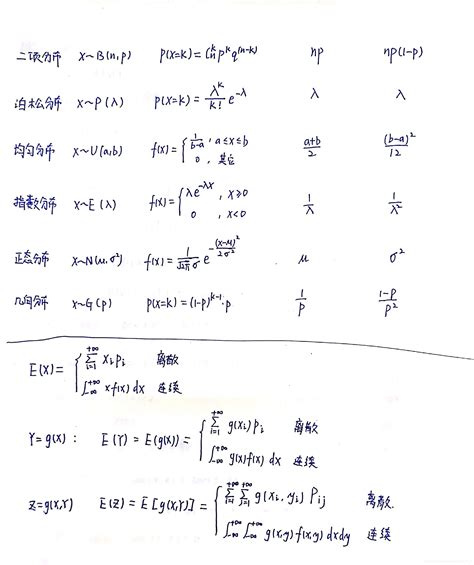 二项分布 X~B(n,p) P(X=k)=C_n^k p^k q^(n-k) np np(1-p)
泊松分布 X~P(λ) P(X=k)=λ^k/k! e^-λ λ λ
均匀分布 X~U(a,b) f(x)={1/(b-a), a≤x≤b a+b/2 (b-a)^2/12
0, 其它
指数分布 X~E(λ) f(x)={λe^-λx, x≥0 1/λ 1/λ^2
0, x<0
正态分布 X~N(μ,σ^2) f(x)=1/(√2π σ) e^-(x-μ)^2/2σ^2 μ σ^2
几何分布 X~G(p) P(X=k)=(1-p)^k-1·p 1/p 1-p/p^2
E(X)={∑_{i=1}^{+∞} x_i p_i 离散
∫_{-∞}^{+∞} xf(x)dx 连续
Y=g(X): E(Y)=E(g(X))={∑_{i=1}^{+∞} g(x_i)p_i 离散
∫_{-∞}^{+∞} g(x)f(x)dx 连续
Z=g(X,Y) E(Z)=E[g(X,Y)]={∑_{i=1}^{+∞}∑_{j=1}^{+∞} g(x_i,y_i)P_ij 离散
∫_{-∞}^{+∞}∫_{-∞}^{+∞} g(x,y)f(x,y)dxdy 连续